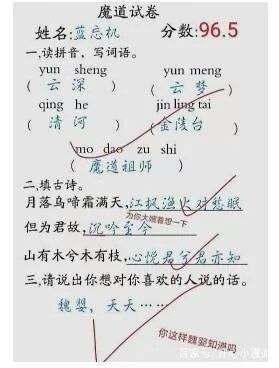 魔道试卷
姓名:蓝忘机 分数:96.5
一.读拼音，写词语。
yun sheng yun meng
(云深) (云梦)
qing he jin ling tai
(清河) (金陵台)
mo dao zu shi
(魔道祖师)
二.填古诗。
月落乌啼霜满天,江枫渔火对愁眠
为你大嫂着想一下
但为君故,沉吟至今
山有木兮木有枝,心悦君兮君亦知
三.请说出你想对你喜欢的人说的话。
魏婴，天天……
你这样魏婴知道吗